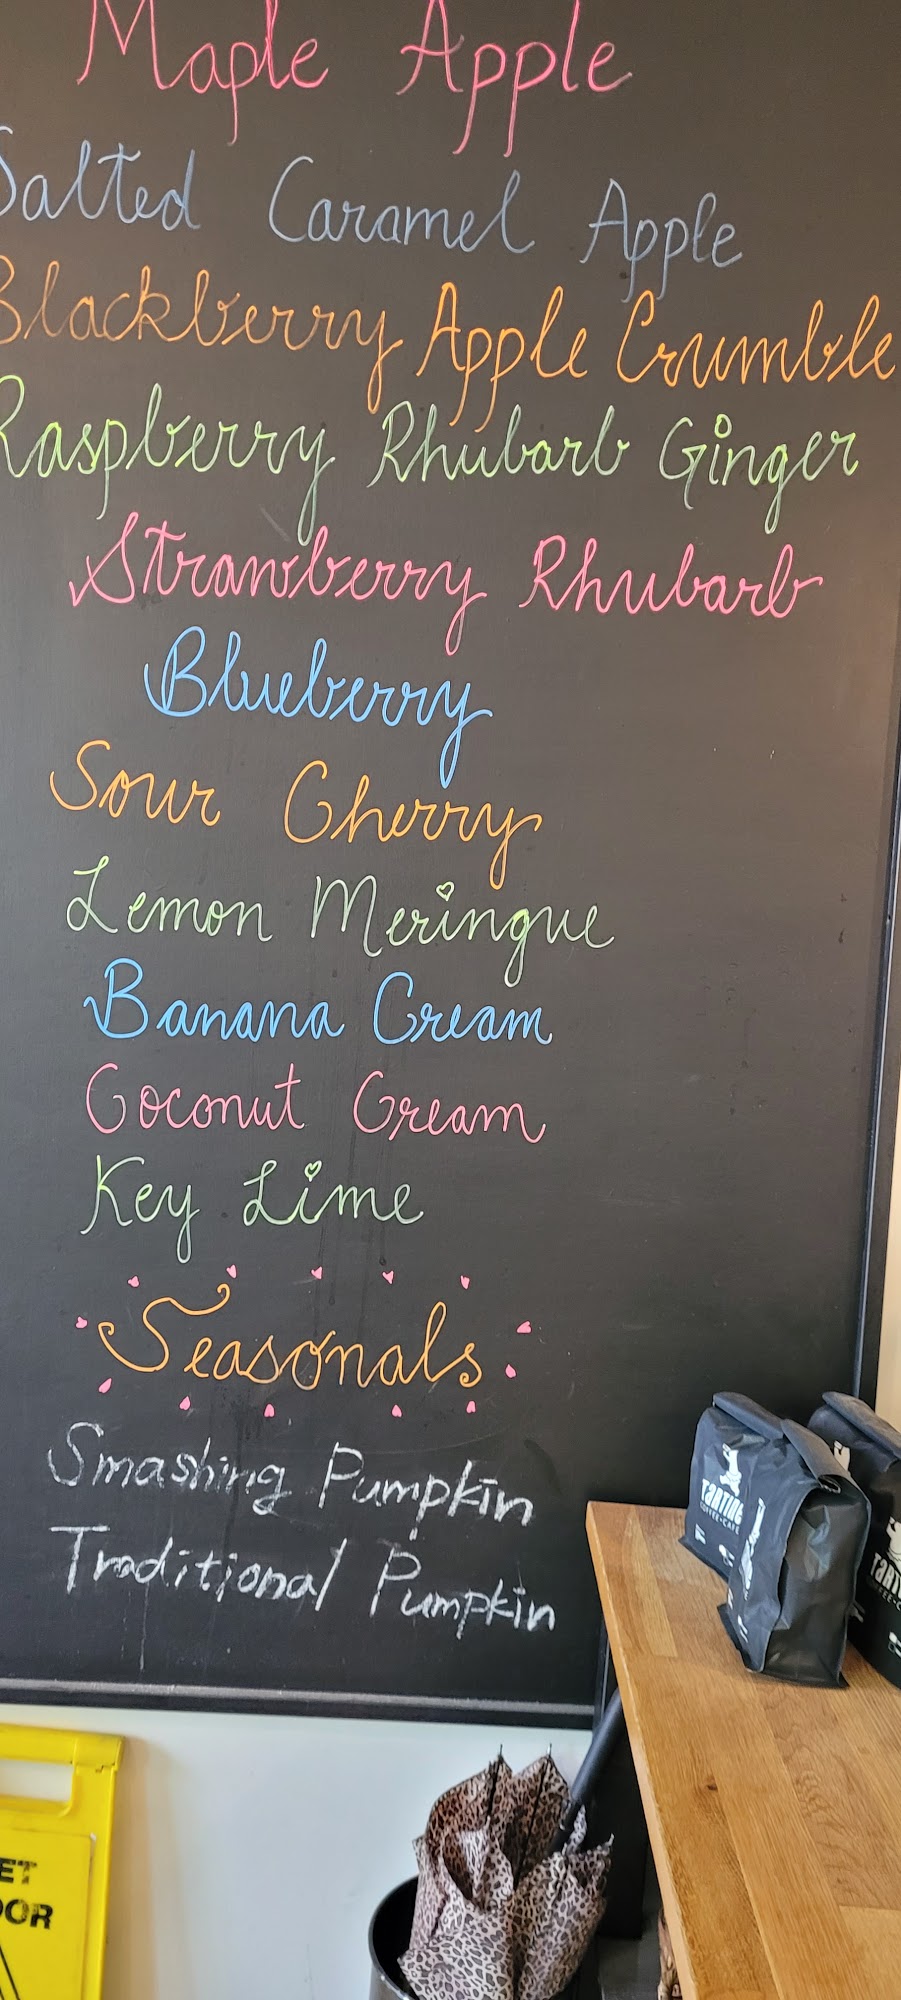 Maple Apple
Salted Caramel Apple
Blackberry Apple Crumble
Raspberry Rhubarb Ginger
Strawberry Rhubarb
Blueberry
Sour Cherry
Lemon Meringue
Banana Cream
Coconut Cream
Key Lime
Seasonals
Smashing Pumpkin
Traditional Pumpkin
TARTINE
COFFEE • CAFE
ET
OOR